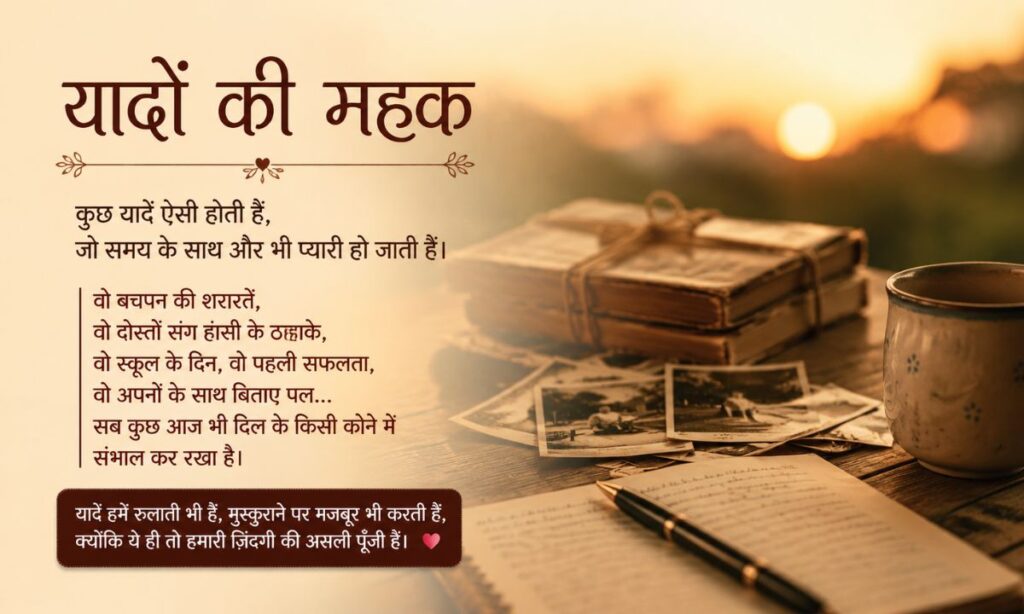 यादों की महक
कुछ यादें ऐसी होती हैं,
जो समय के साथ और भी प्यारी हो जाती हैं।
वो बचपन की शरारतें,
वो दोस्तों संग हांसी के ठहाके,
वो स्कूल के दिन, वो पहली सफलता,
वो अपनों के साथ बिताए पल...
सब कुछ आज भी दिल के किसी कोने में
संभाल कर रखा है।
यादें हमें रुलाती भी हैं, मुस्कुराने पर मजबूर भी करती हैं,
क्योंकि ये ही तो हमारी ज़िंदगी की असली पूँजी हैं।